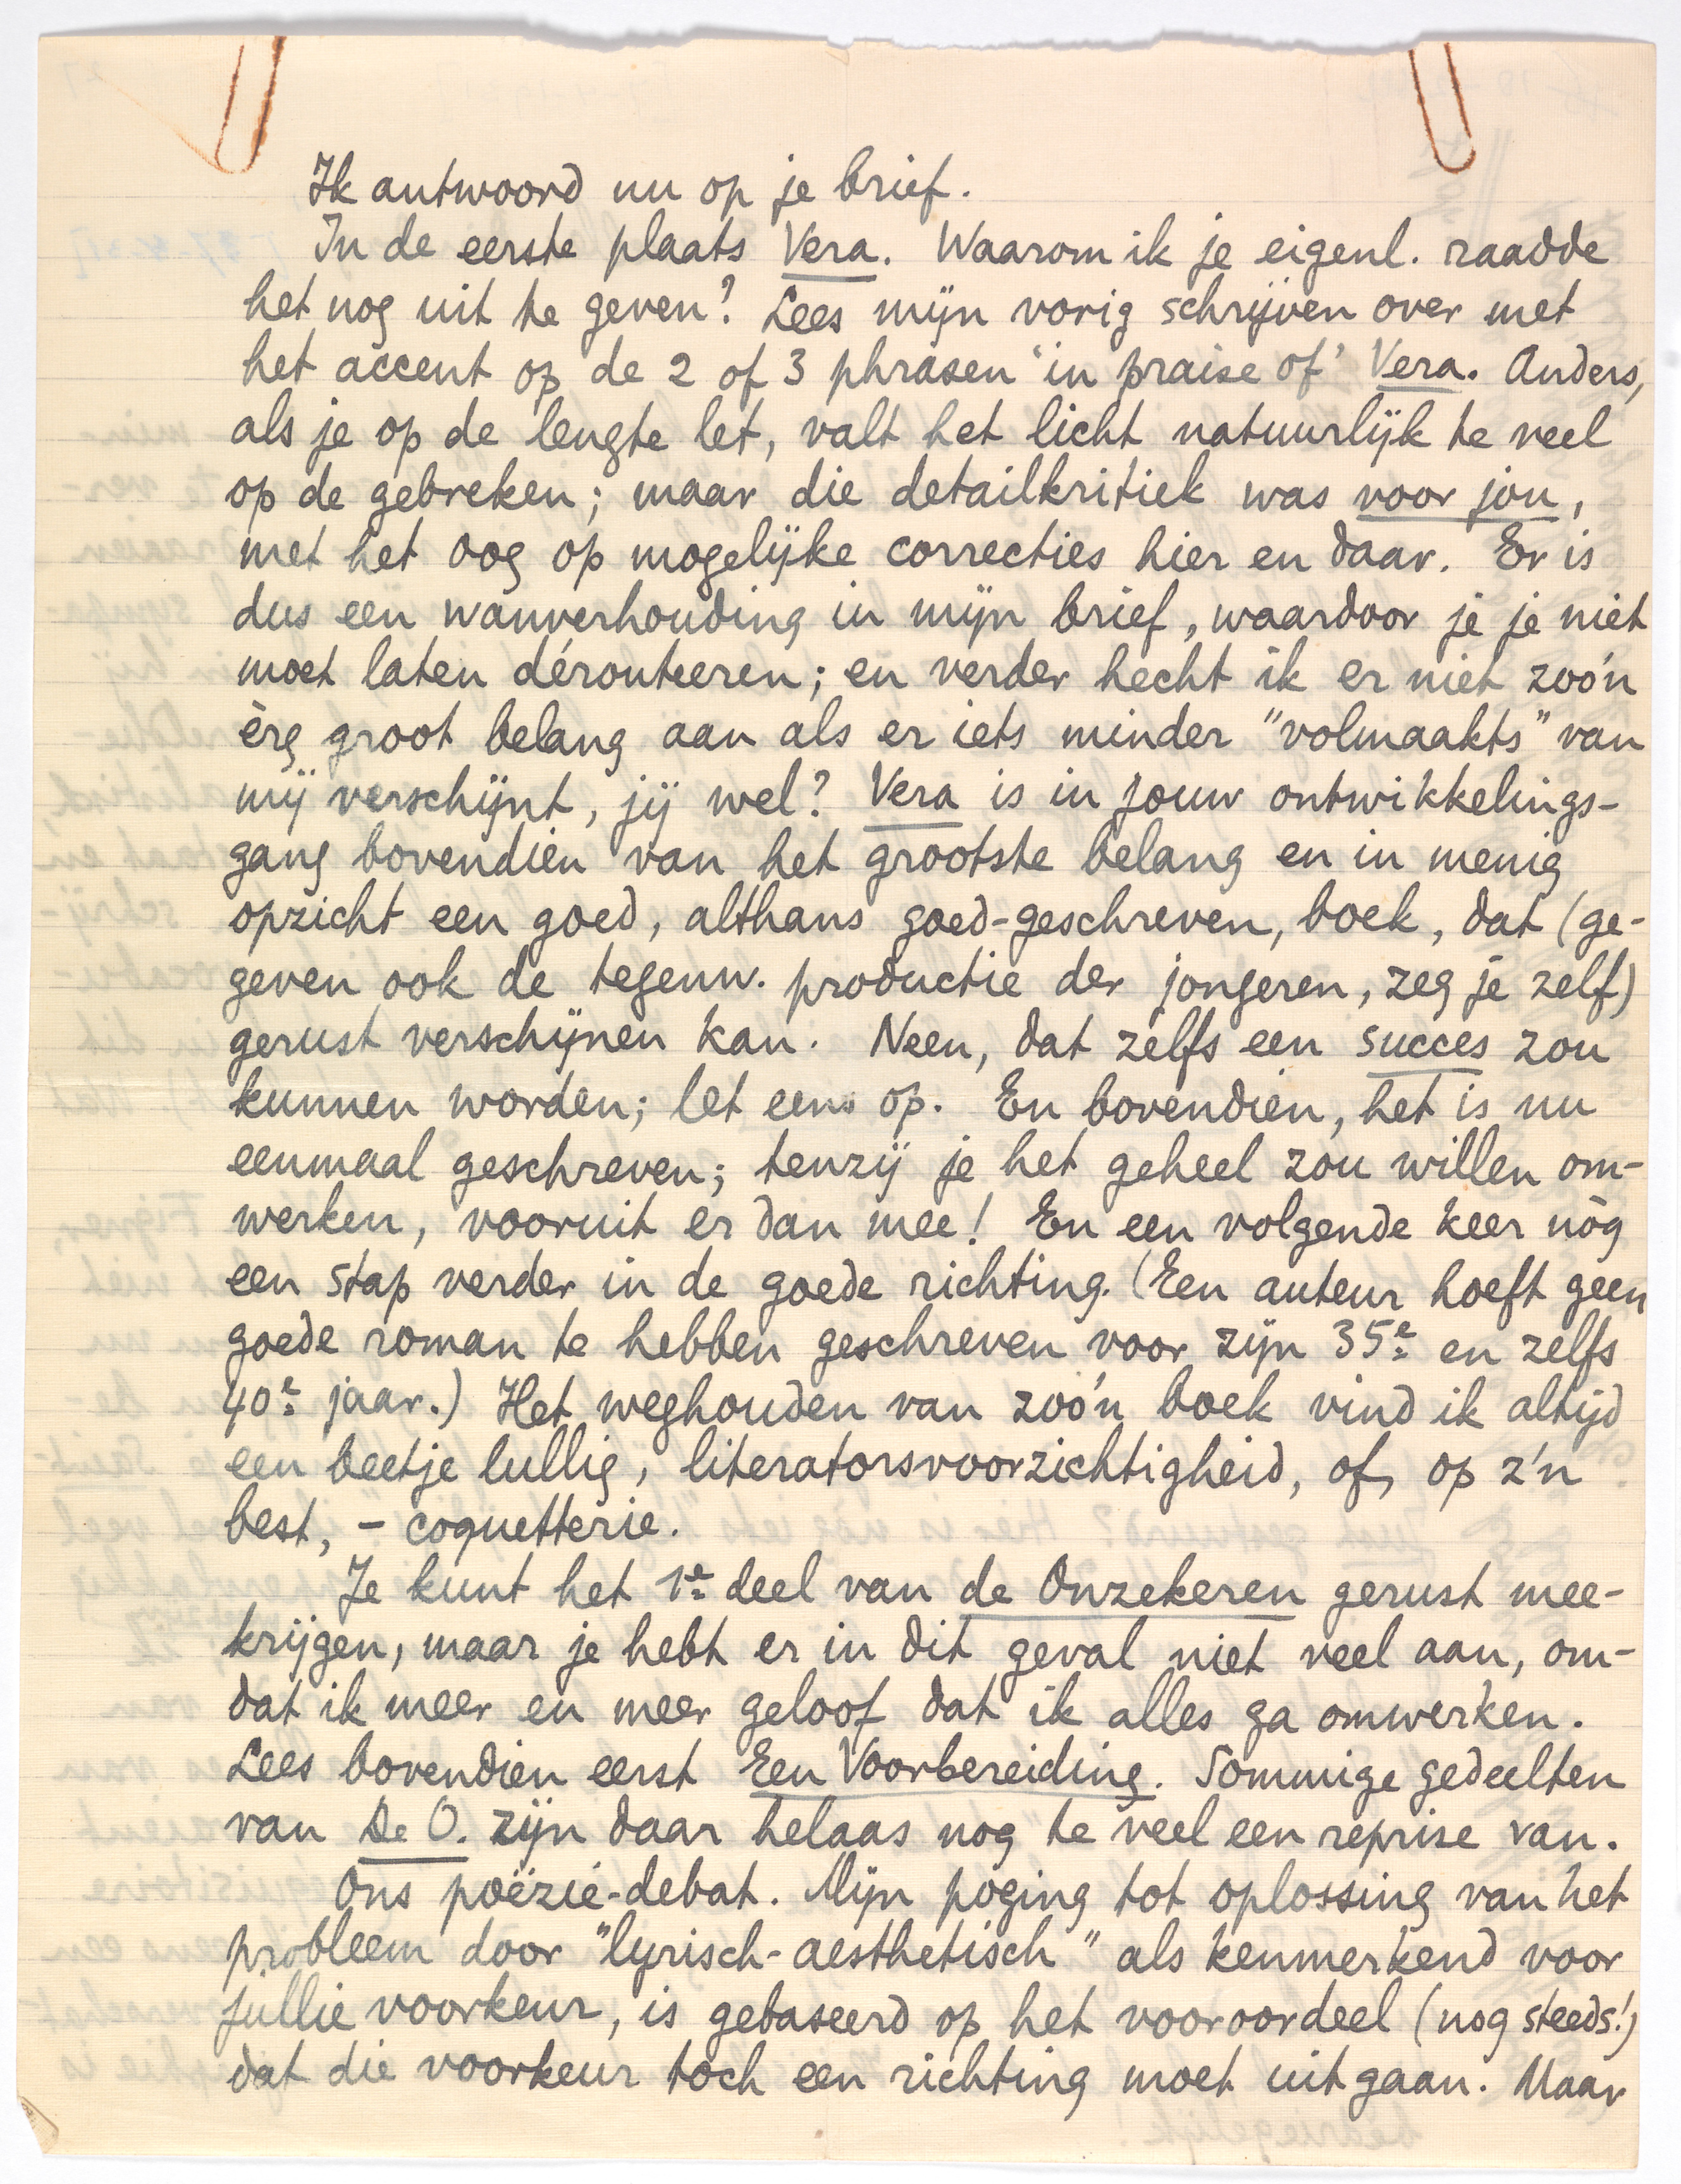 Ik antwoord nu op je brief.
In de eerste plaats Vera. Waarom ik je eigenl. raadde
het nog uit te geven? Lees mijn vorig schrijven over met
het accent op de 2 of 3 phrasen 'in praise of' Vera. Anders,
als je op de lengte let, valt het licht natuurlijk te veel
op de gebreken; maar die detailkritiek was voor jou,
met het oog op mogelijke correcties hier en daar. Er is
dus een wanverhouding in mijn brief, waardoor je je niet
moet laten dérouteeren; en verder hecht ik er niet zoo'n
èrg groot belang aan als er iets minder "volmaakts" van
mij verschijnt, jij wel? Vera is in jouw ontwikkelings-
gang bovendien van het grootste belang en in menig
opzicht een goed, althans goed-geschreven, boek, dat (ge-
geven ook de tegenw. productie der jongeren, zeg je zelf)
gerust verschijnen kan. Neen, dat zelfs een succes zou
kunnen worden; let eens op. En bovendien, het is nu
eenmaal geschreven; tenzij je het geheel zou willen om-
werken, vooruit er dan mee! En een volgende keer nòg
een stap verder in de goede richting. (Een auteur hoeft geen
goede roman te hebben geschreven voor zijn 35e en zelfs
40e jaar.) Het weghouden van zoo'n boek vind ik altijd
een beetje lullig, literatorsvoorzichtigheid, of, op z'n
best, - coquetterie.
Je kunt het 1e deel van de Onzekeren gerust mee-
krijgen, maar je hebt er in dit geval niet veel aan, om-
dat ik meer en meer geloof dat ik alles ga omwerken.
Lees bovendien eerst Een Voorbereiding. Sommige gedeelten
van De O. zijn daar helaas nog te veel een reprise van.
Ons poëzie-debat. Mijn poging tot oplossing van het
probleem door "lyrisch-aesthetisch" als kenmerkend voor
jullie voorkeur, is gebaseerd op het vooroordeel (nog steeds!)
dat die voorkeur toch een richting moet uitgaan. Maar